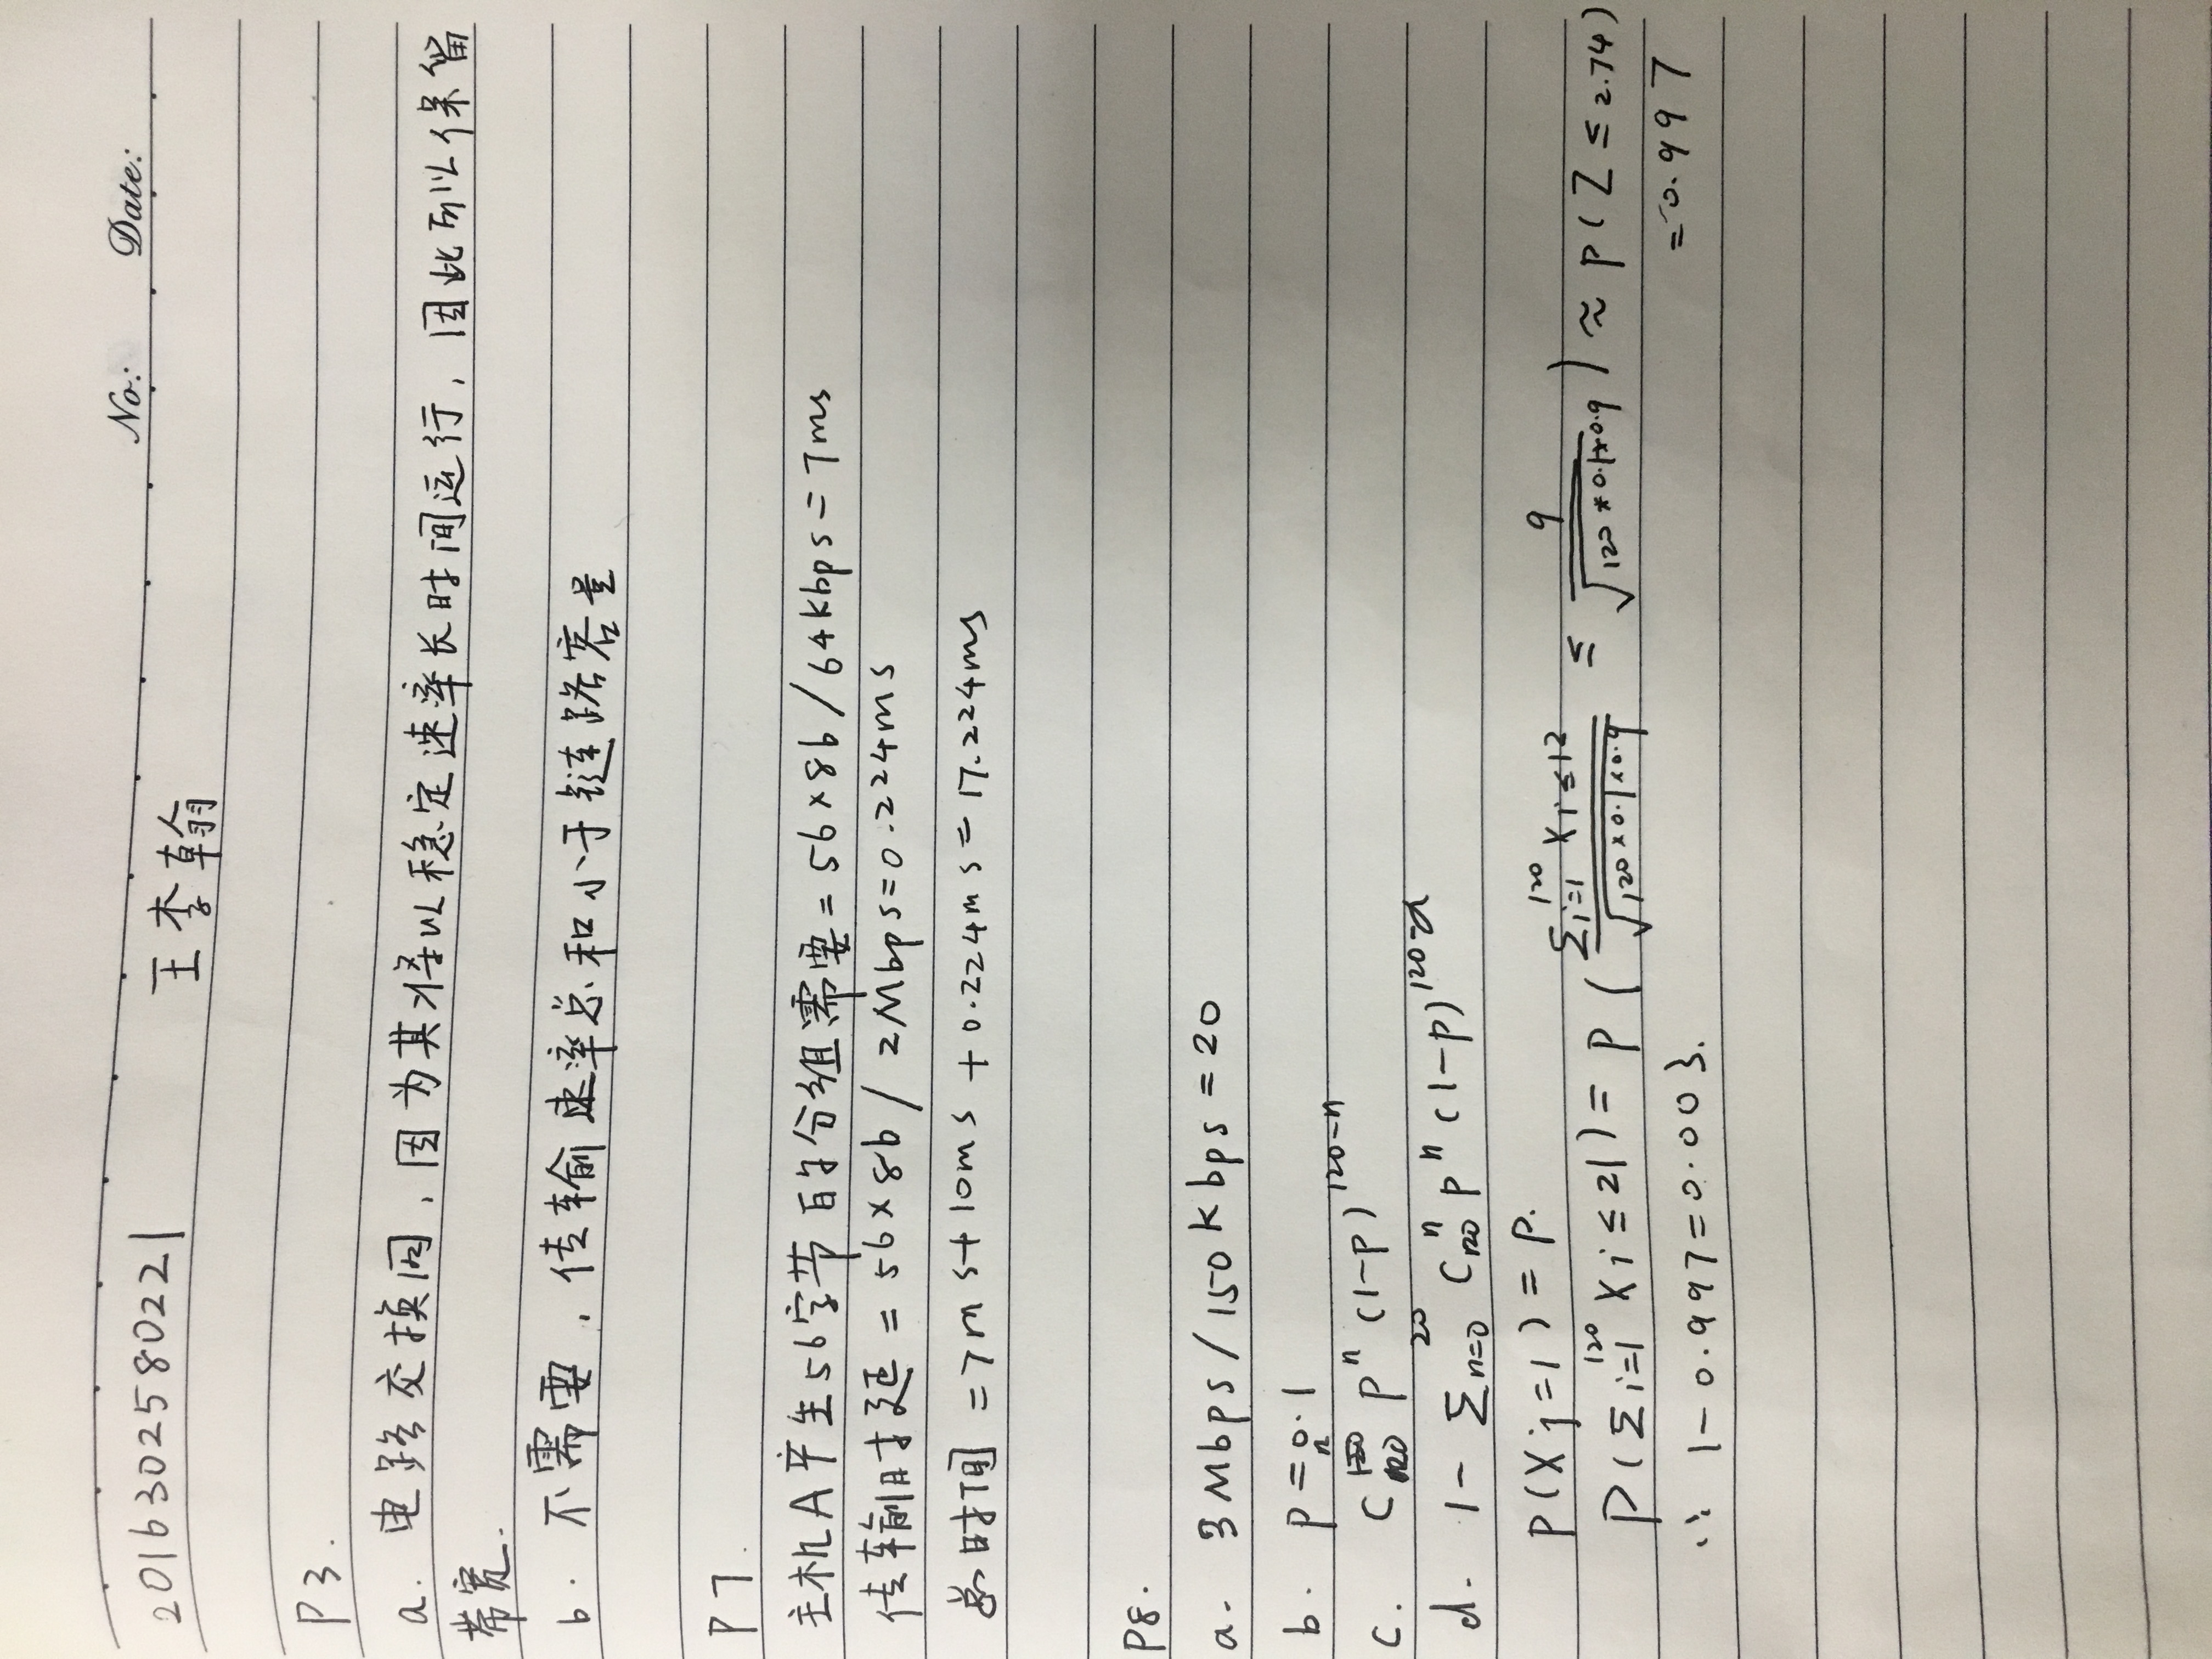 No: Date:
2016302580221 王李翰
P3.
a. 电路交换网，因为其将以稳定速率长时间运行，因此可以保留
带宽.
b. 不需要，传输速率总和小于链路容量
P7.
主机A产生56字节的分组需要=56×8b/64kbps=7ms
传输时延=56×8b/2Mbps=0.224ms
总时间=7ms+10ms+0.224ms=17.224ms
P8.
a. 3Mbps/150kbps=20
b. p=0.1
c. C₁₂₀ⁿ pⁿ (1-p)^{120-n}
d. 1-∑_{n=0}^{20} C₁₂₀ⁿ pⁿ (1-p)^{120-n}
P(Xj=1)=p.
P(∑_{i=1}^{120} Xi≤21)=P(∑_{i=1}^{120} Xi≤12/√(120×0.1×0.9) ≤ 9/√(120*0.1*0.9))≈P(Z≤2.74)
=0.997
∴ 1-0.997=0.003.